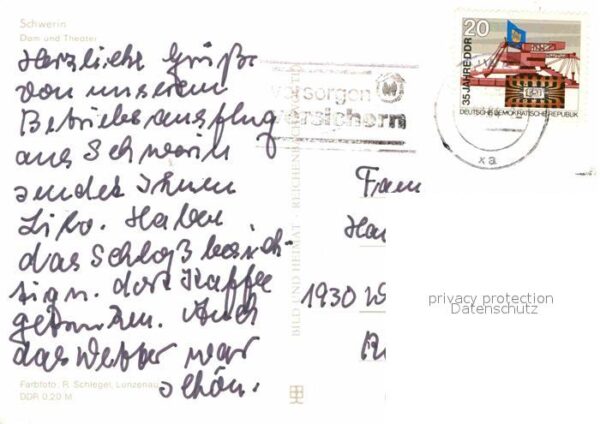 Schwerin
Dom und Theater
Herzliche Grüße
von unserem
Betriebsausflug
aus Schwerin
sendet Ihnen
Habe
das Schloß besich-
tign. dort Kaffee
getrunken. Auch
das Wetter war
schön.
Farbfoto: R. Schlegel, Lunzenau
DDR 0,20 M
BILD UND HEIMAT · REICHENBACH
vorsorgen
versichern
20
35 JAHRE DDR
DEUTSCHE DEMOKRATISCHE REPUBLIK
xa
Frau
1930
privacy protection
Datenschutz